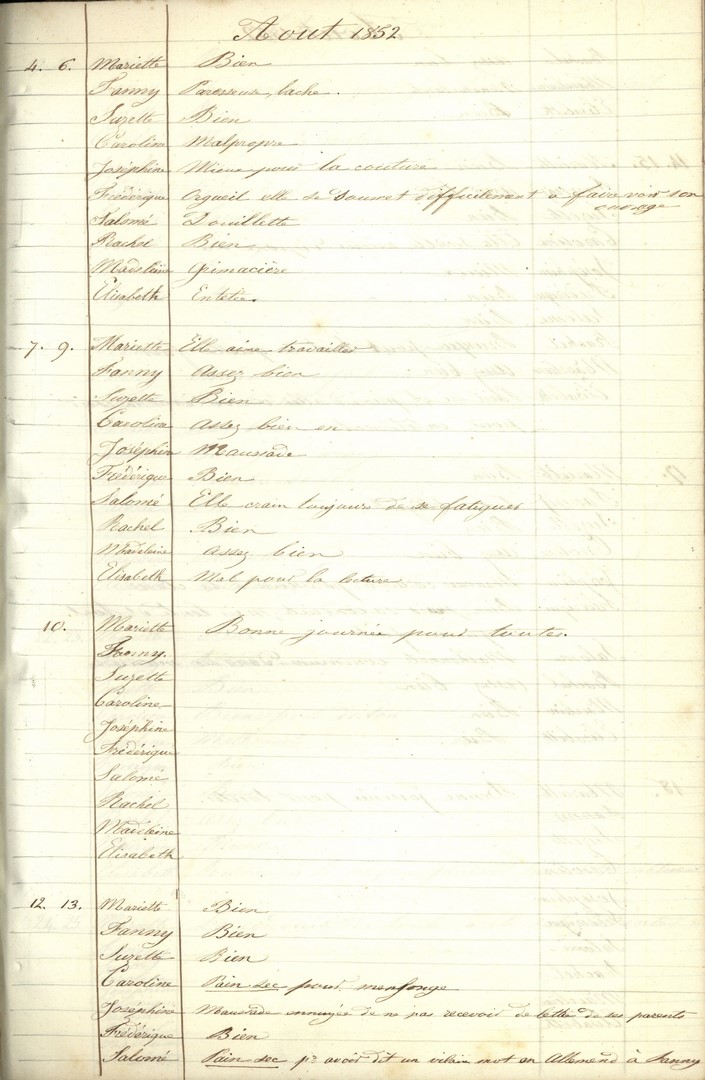 Aout 1852
4. 6. Mariette Bien
Fanny Paresseuse, lache.
Suzette Bien
Caroline Malpropre
Joséphine Mieux pour la couture
Frédérique Orgueil elle se soumet difficilement a faire voir son
ouvrage
Salomé Douillette
Rachel Bien
Madeleine Grimacière
Elisabeth Entetée.
7. 9. Mariette Elle aime travailler
Fanny Assez bien
Suzette Bien
Caroline Assez bien en
Joséphine Maussade
Frédérique Bien
Salomé Elle crain toujours de se fatiguer
Rachel Bien
Madeleine Assez bien
Elisabeth Mal pour la lecture
10. Mariette Bonne journée pour toutes.
Fanny.
Suzette
Caroline
Joséphine
Frédérique
Salomé
Rachel
Madeleine
Elisabeth
12. 13. Mariette Bien
Fanny Bien
Suzette Bien
Caroline Pain sec pour mensonge
Joséphine Maussade ennuyée de ne pas recevoir de lettre de ses parents
Frédérique Bien
Salomé Pain sec pr avoir dit un vilain mot en Allemand à Fanny